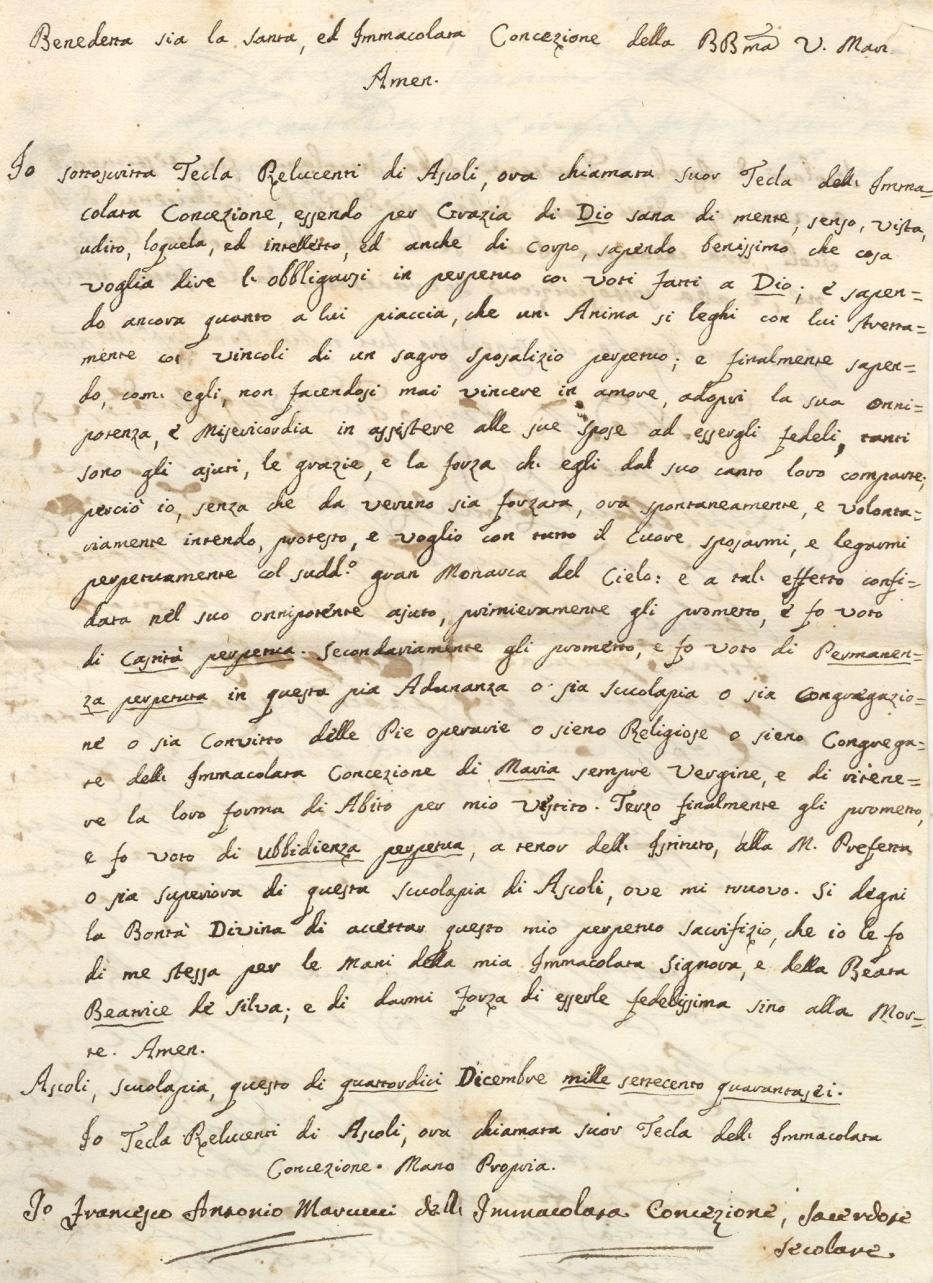 Benedetta sia la santa, ed Immacolata Concezione della BBma V. Mar.
Amen.
Io sottoscritta Tecla Relucenti di Ascoli, ora chiamata suor Tecla dell' Imma=
colata Concezione, essendo per Grazia di Dio sana di mente, senso, vista,
udito, loquela, ed intelletto, ed anche di Corpo, sapendo benissimo che cosa
voglia dire l' obbligarsi in perpetuo co' voti fatti a Dio; e sapen=
do ancora quanto a lui piaccia, che un' Anima si leghi con lui stretta=
mente co' vincoli di un sagro sposalizio perpetuo; e finalmente sapen=
do, com' egli, non facendosi mai vincere in amore, adopri la sua onni=
potenza, e Misericordia in assistere alle sue spose ad essergli fedeli, tanti
sono gli ajuti, le grazie, e la forza ch' egli dal suo canto loro comparte;
perciò io, senza che da veruno sia forzata, ora spontaneamente, e volonta=
riamente intendo, protesto, e voglio con tutto il Cuore sposarmi, e legarmi
perpetuamente col sudd.o gran Monarca del Cielo: e a tal' effetto confi=
data nel suo onnipotente ajuto, primieramente gli prometto, e fo voto
di Castità perpetua. Secondariamente gli prometto, e fo voto di Permanen=
za perpetua in questa pia Adunanza o sia scuolapia o sia Congregazio=
ne o sia Convitto delle Pie operarie o sieno Religiose o sieno Congrega=
te dell' Immacolata Concezione di Maria sempre Vergine, e di ritene=
re la loro forma di Abito per mio Vestito. Terzo finalmente gli prometto,
e fo voto di Ubbidienza perpetua, a tenor dell' Istituto, alla M. Prefetta
o sia superiora di questa scuolapia di Ascoli, ove mi truovo. Si degni
la Bontà Divina di accettar questo mio perpetuo sacrifizio, che io le fo
di me stessa per le Mani della mia Immacolata Signora, e della Beata
Beatrice de Silva; e di darmi forza di esserle fedelissima sino alla Mor=
te. Amen.
Ascoli, scuolapia, questo di quattordici Dicembre mille settecento quarantasei.
Io Tecla Relucenti di Ascoli, ora chiamata suor Tecla dell' Immacolata
Concezione. Mano Propria.
Io Francesco Antonio Marcucci dell' Immacolata Concezione, Sacerdote
secolare.